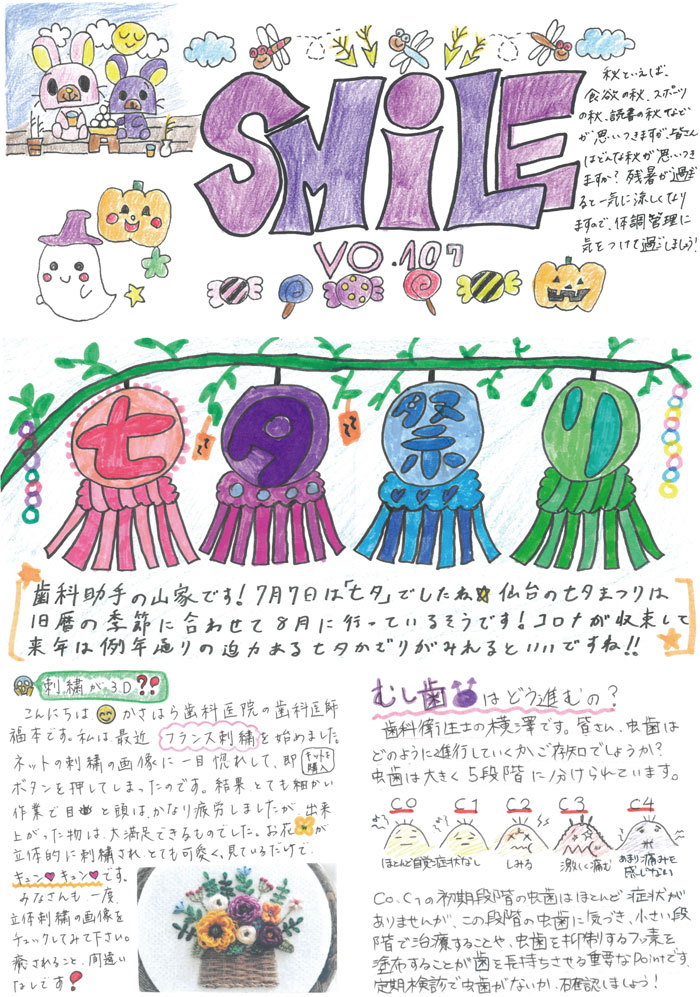 SMiLE
VO.107
秋といえば、
食欲の秋、スポーツ
の秋、読書の秋など
が思いつきますが、皆さん
はどんな秋が思いつき
ますか？残暑が過ぎ
ると一気に涼しくなり
ますので、体調管理に
気をつけて過ごしましょう！
七夕祭り
歯科助手の山家です！7月7日は「七夕」でしたね 仙台の七夕まつりは
旧暦の季節に合わせて8月に行っているそうです！コロナが収束して
来年は例年通りの迫力ある七夕かざりがみれるといいですね！！
刺繍が3D??
こんにちは かさはら歯科医院の歯科医師
福本です。私は最近 フランス刺繍を始めました。
ネットの刺繍の画像に一目惚れして、即 キットを購入
ボタンを押してしまったのです。結果とても細かい
作業で目と頭は、かなり疲労しましたが、出来
上がった物は、大満足できるものでした。お花が
立体的に刺繍され、とても可愛く、見ているだけで、
キュン♥キュン♥です。
みなさんも一度、
立体刺繍の画像を
チェックしてみて下さい。
癒されること、間違い
なしです！
むし歯はどう進むの？
歯科衛生士の横澤です。皆さん、虫歯は
どのように進行していくかご存知でしょうか？
虫歯は大きく5段階に分けられています。
C0 C1 C2 C3 C4
ほとんど自覚症状なし しみる 激しく痛む あまり痛みを感じない
C0、C1の初期段階の虫歯はほとんど症状が
ありませんが、この段階の虫歯に気づき、小さい段
階で治療することや、虫歯を抑制するフッ素を
塗布することが歯を長持ちさせる重要なPointです。
定期検診で虫歯がないか、確認しましょう！